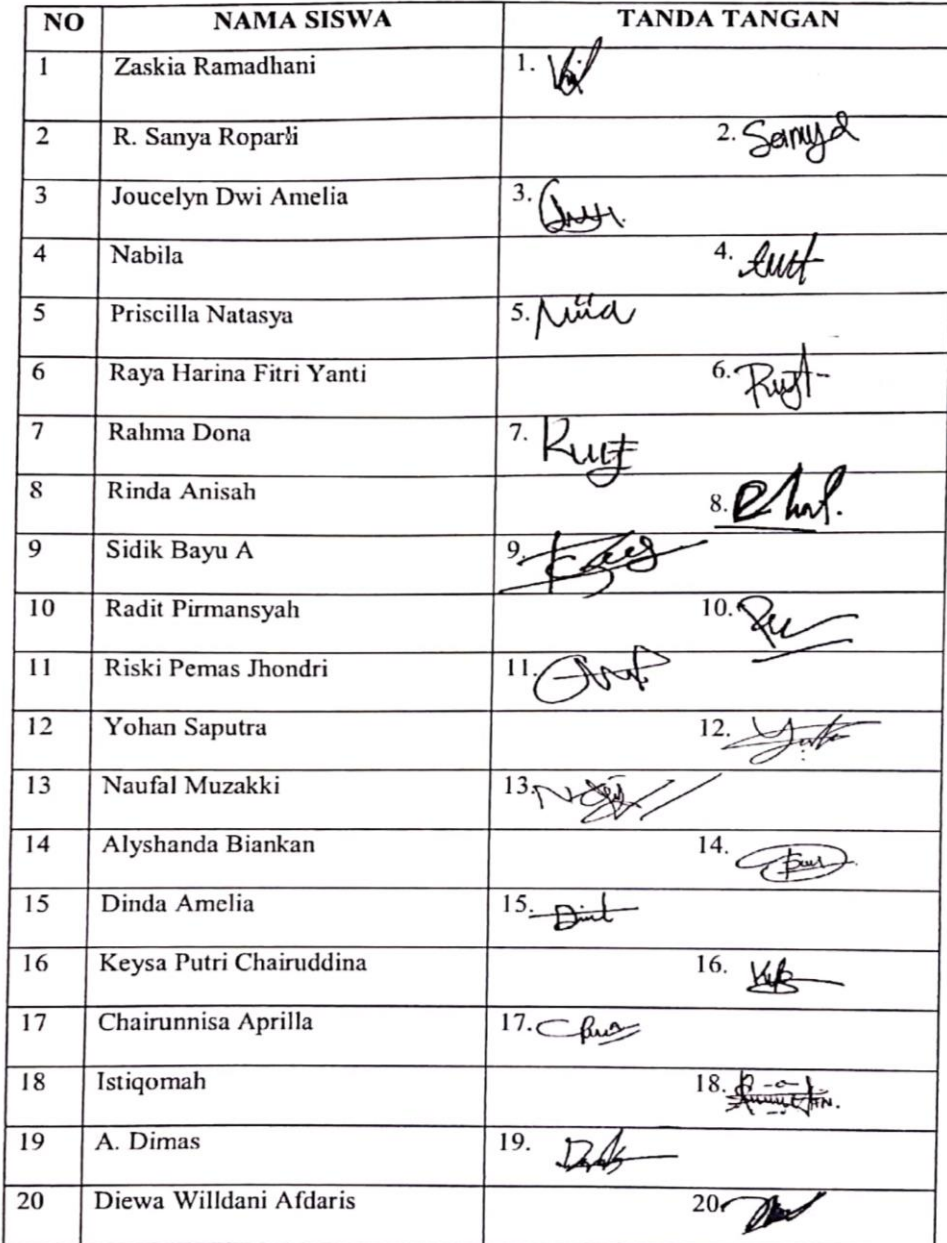 NO NAMA SISWA TANDA TANGAN
1 Zaskia Ramadhani 1.
2 R. Sanya Roparli 2. Sanya
3 Joucelyn Dwi Amelia 3.
4 Nabila 4.
5 Priscilla Natasya 5.
6 Raya Harina Fitri Yanti 6.
7 Rahma Dona 7.
8 Rinda Anisah 8.
9 Sidik Bayu A 9.
10 Radit Pirmansyah 10.
11 Riski Pemas Jhondri 11.
12 Yohan Saputra 12.
13 Naufal Muzakki 13.
14 Alyshanda Biankan 14.
15 Dinda Amelia 15.
16 Keysa Putri Chairuddina 16.
17 Chairunnisa Aprilla 17.
18 Istiqomah 18.
19 A. Dimas 19.
20 Diewa Willdani Afdaris 20